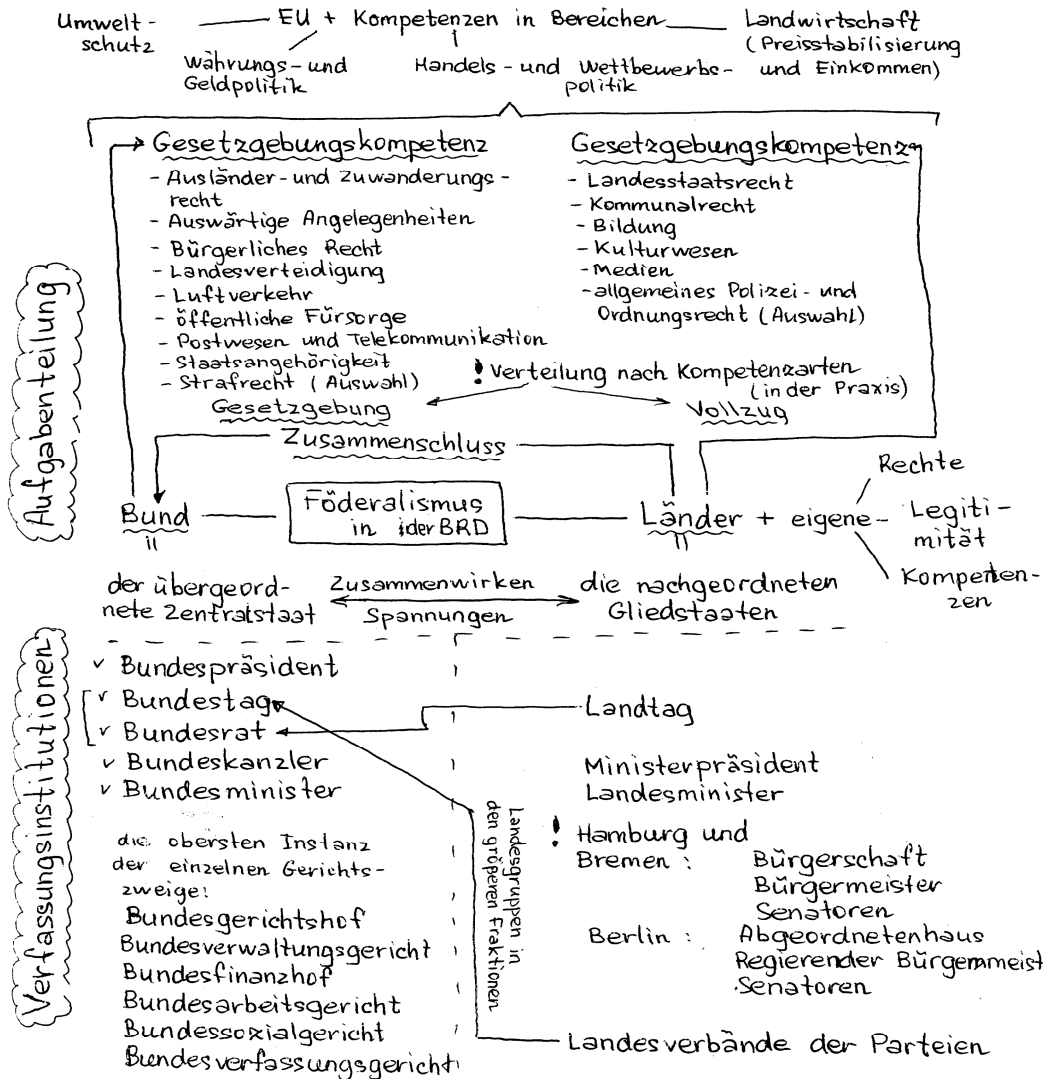 Umwelt-
schutz
EU + Kompetenzen in Bereichen
Landwirtschaft
(Preisstabilisierung
und Einkommen)
Währungs- und
Geldpolitik
Handels- und Wettbewerbs-
politik
Gesetzgebungskompetenz
- Ausländer- und Zuwanderungs-
recht
- Auswärtige Angelegenheiten
- Bürgerliches Recht
- Landesverteidigung
- Luftverkehr
- öffentliche Fürsorge
- Postwesen und Telekommunikation
- Staatsangehörigkeit
- Strafrecht (Auswahl)
Gesetzgebungskompetenz
- Landesstaatsrecht
- Kommunalrecht
- Bildung
- Kulturwesen
- Medien
- allgemeines Polizei- und
Ordnungsrecht (Auswahl)
! Verteilung nach Kompetenzarten
(in der Praxis)
Gesetzgebung
Vollzug
Zusammenschluss
Aufgabenteilung
Bund
Föderalismus
in der BRD
Länder + eigene
Rechte
Legiti-
mität
Kompenten-
zen
der übergeord-
nete Zentralstaat
Zusammenwirken
Spannungen
die nachgeordneten
Gliedstaaten
Verfassungsinstitutionen
✓ Bundespräsident
✓ Bundestag
✓ Bundesrat
✓ Bundeskanzler
✓ Bundesminister
die obersten Instanz
der einzelnen Gerichts-
zweige:
Bundesgerichtshof
Bundesverwaltungsgericht
Bundesfinanzhof
Bundesarbeitsgericht
Bundessozialgericht
Bundesverfassungsgericht
Landesgruppen in
den größeren Fraktionen
Landtag
Ministerpräsident
Landesminister
! Hamburg und
Bremen: Bürgerschaft
Bürgermeister
Senatoren
Berlin: Abgeordnetenhaus
Regierender Bürgermmeist
Senatoren
Landesverbände der Parteien